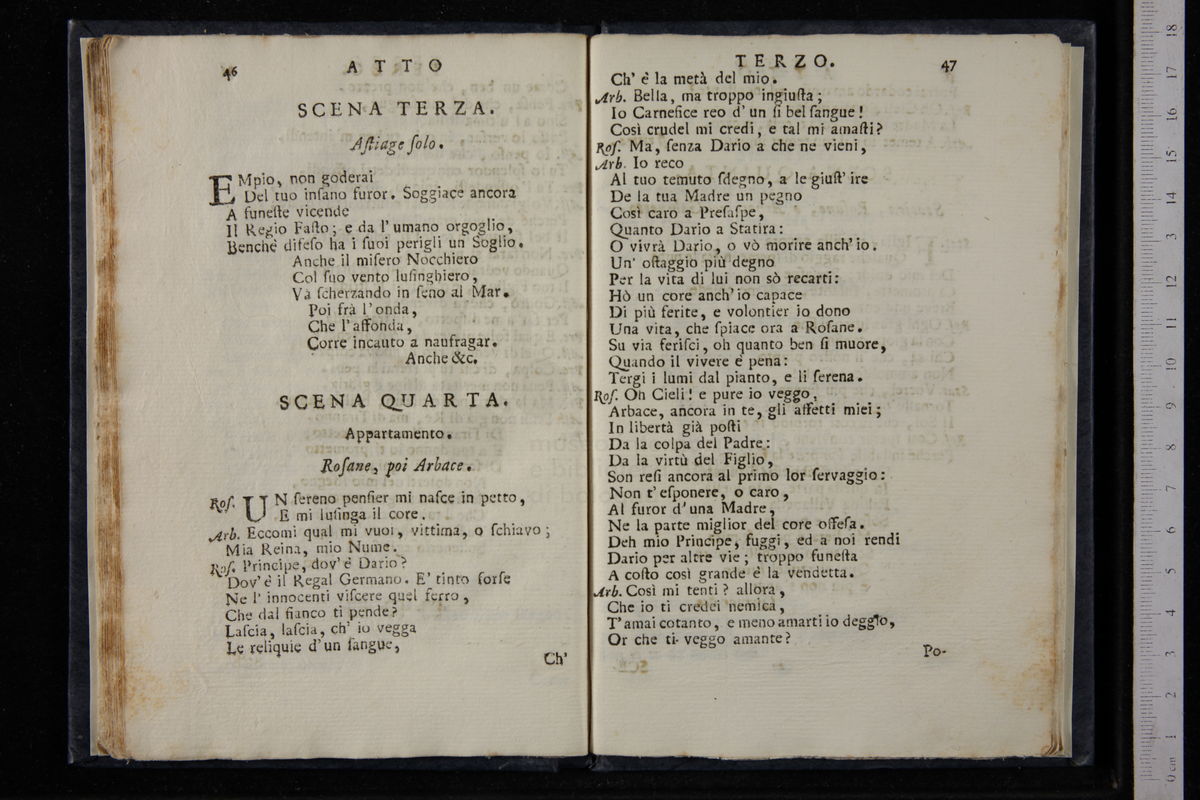 46 ATTO
SCENA TERZA.
Aſtiage ſolo.
EMpio, non goderai
Del tuo inſano furor. Soggiace ancora
A funeſte vicende
Il Regio Faſto; e da l'umano orgoglio,
Benchè difeſo ha i ſuoi perigli un Soglio.
Anche il miſero Nocchiero
Col ſuo vento luſinghiero,
Và ſcherzando in ſeno al Mar.
Poi frà l'onda,
Che l'affonda,
Corre incauto a naufragar.
Anche &c.
SCENA QUARTA.
Appartamento.
Roſane, poi Arbace.
Roſ. UN ſereno penſier mi naſce in petto,
E mi luſinga il core.
Arb. Eccomi qual mi vuoi, vittima, o ſchiavo;
Mia Reina, mio Nume.
Roſ. Principe, dov'è Dario?
Dov'è il Regal Germano. E' tinto forſe
Ne l' innocenti viſcere quel ferro,
Che dal fianco ti pende?
Laſcia, laſcia, ch' io vegga
Le reliquie d'un ſangue,
Ch'
TERZO. 47
Ch' è la metà del mio.
Arb. Bella, ma troppo ingiuſta;
Io Carnefice reo d'un ſi bel ſangue!
Così crudel mi credi, e tal mi amaſti?
Roſ. Ma, ſenza Dario a che ne vieni,
Arb. Io reco
Al tuo temuto ſdegno, a le giuſt' ire
De la tua Madre un pegno
Così caro a Preſaſpe,
Quanto Dario a Statira:
O vivrà Dario, o vò morire anch'io.
Un' oſtaggio più degno
Per la vita di lui non sò recarti:
Hò un core anch'io capace
Di più ferite, e volontier io dono
Una vita, che ſpiace ora a Roſane.
Su via feriſci, oh quanto ben ſi muore,
Quando il vivere è pena:
Tergi i lumi dal pianto, e li ſerena.
Roſ. Oh Cieli! e pure io veggo,
Arbace, ancora in te, gli affetti miei;
In libertà già poſti
Da la colpa del Padre:
Da la virtù del Figlio,
Son reſi ancora al primo lor ſervaggio:
Non t'eſponere, o caro,
Al furor d'una Madre,
Ne la parte miglior del core offeſa.
Deh mio Principe, fuggi, ed a noi rendi
Dario per altre vie; troppo funeſta
A coſto così grande è la vendetta.
Arb. Così mi tenti? allora,
Che io ti credei nemica,
T'amai cotanto, e meno amarti io deggio,
Or che ti veggo amante?
Po-